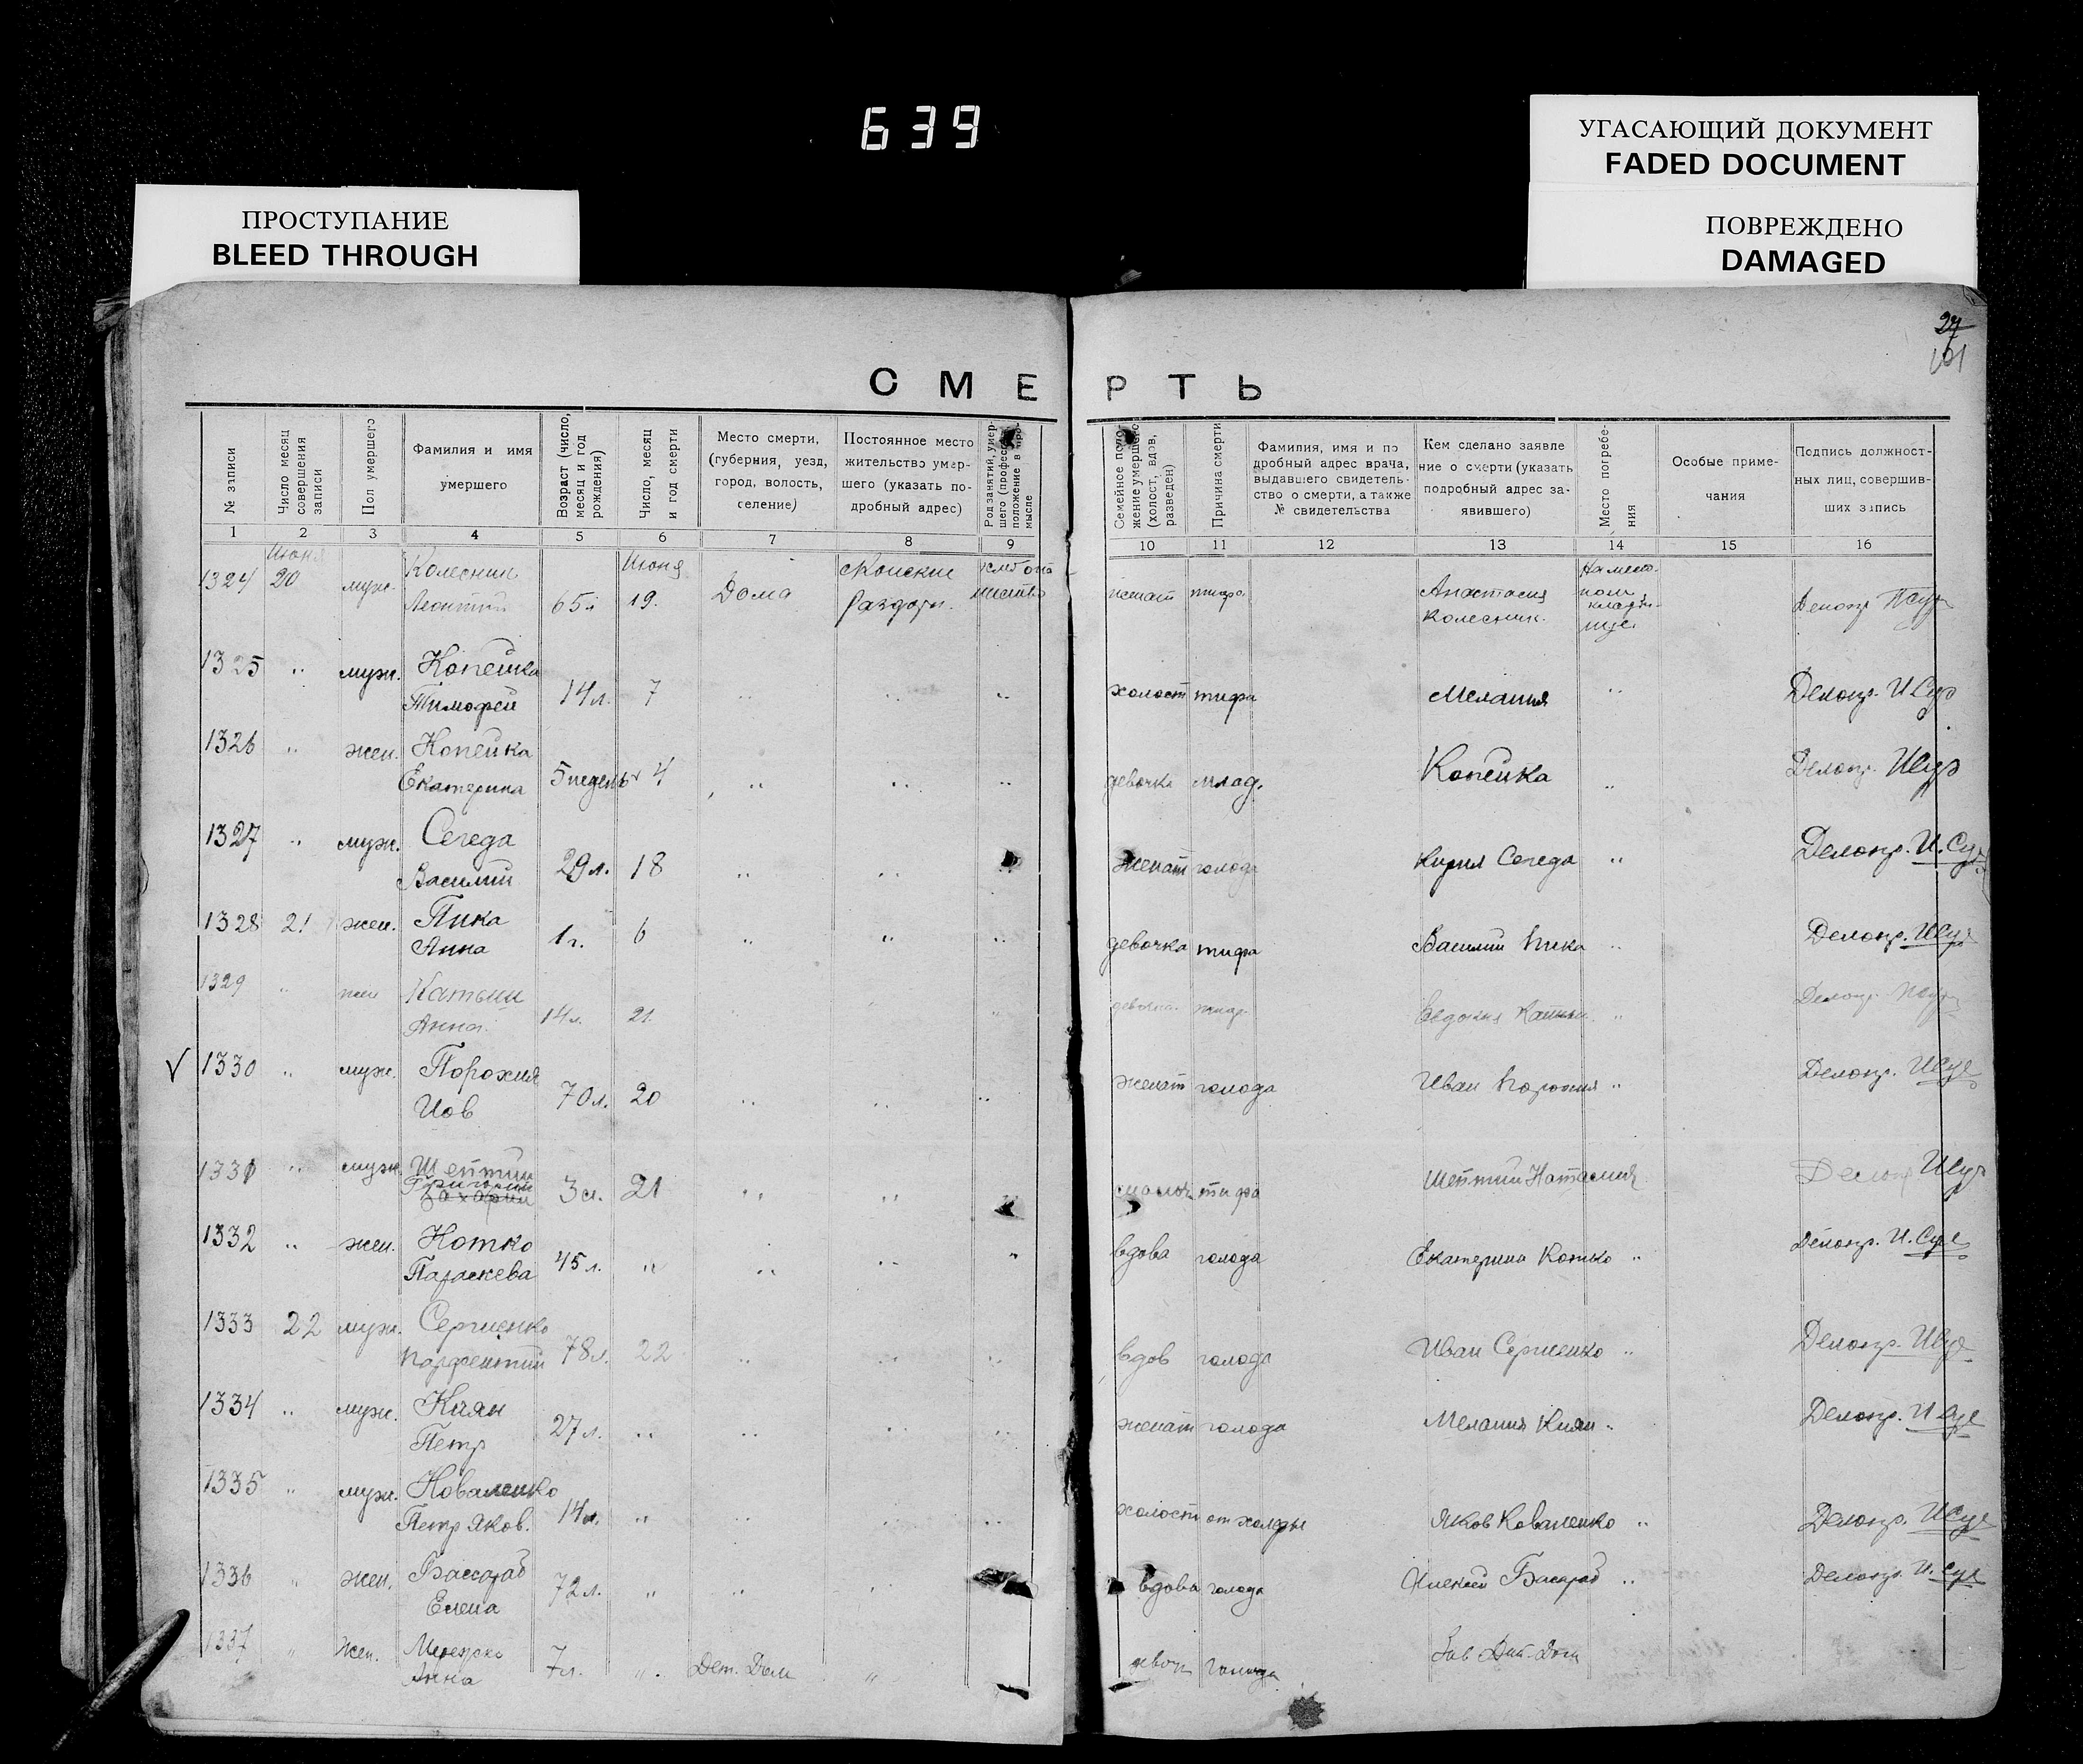 639
УГАСАЮЩИЙ ДОКУМЕНТ
FADED DOCUMENT
ПРОСТУПАНИЕ
BLEED THROUGH
ПОВРЕЖДЕНО
DAMAGED
27
СМЕРТЬ
№ записи
Число месяц совершения записи
Пол умершего
Фамилия и имя умершего
Возраст (число, месяц и год рождения)
Число, месяц и год смерти
Место смерти, (губерния, уезд, город, волость, селение)
Постоянное место жительство умершего (указать подробный адрес)
Род занятий, умершего (профессия, положение в промысле
Семейное положение умершего (холост, вдов, разведен)
Причина смерти
Фамилия, имя и подробный адрес врача, выдавшего свидетельство о смерти, а также № свидетельства
Кем сделано заявление о смерти (указать подробный адрес заявившего)
Место погребения
Особые примечания
Подпись должностных лиц, совершивших запись
1 2 3 4 5 6 7 8 9 10 11 12 13 14 15 16
1324 Июня 20 муж. Колесник Леонтий 65 л Июня 19. Дома Конские Раздоры. женат тифа Анастасия Колесник. Делопр.
1325 " муж. Копейка Тимофей 14 л. 7 " " " холост тифа Мелания " Делопр.
1326 " жен. Копейка Екатерина 5 недель 4 " " " девочка млад. Копейка " Делопр.
1327 " муж. Сегеда Василий 29 л. 18 " " " женат голода Кирил Сегеда " Делопр.
1328 21 жен. Пика Анна 1 г. 6 " " " девочка тифа Василий Пика " Делопр.
1329 " жен Анна 14 л. 21. " " " Евдокия " Делопр.
√ 1330 " муж. Порохня Иов 70 л. 20 " " " женат голода Иван Порохня " Делопр.
1331 " муж. Шептий Григорий Захарий 21 " " тифа Шептий Наталия Делопр.
1332 " жен. Котко Параскева 45 л. " " " " вдова голода Екатерина Котко " Делопр.
1333 22 муж. Сергиенко Парфентий 78 л. 22 " " " вдов голода Иван Сергиенко " Делопр.
1334 " муж. Киян Петр 27 л. " " " " женат голода Мелания Киян " Делопр.
1335 " муж. Коваленко Петр Яков. 14 л. " " " " холост от холеры Яков Коваленко " Делопр.
1336 " жен. Бассараб Елена 72 л. " " " вдова голода Алексей Басараб " Делопр.
1337 " жен. Анна 7 л. " Дет. Дом " голода Зав Дет. Дом